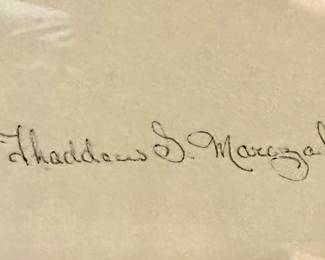 Thaddeus S. Maroza